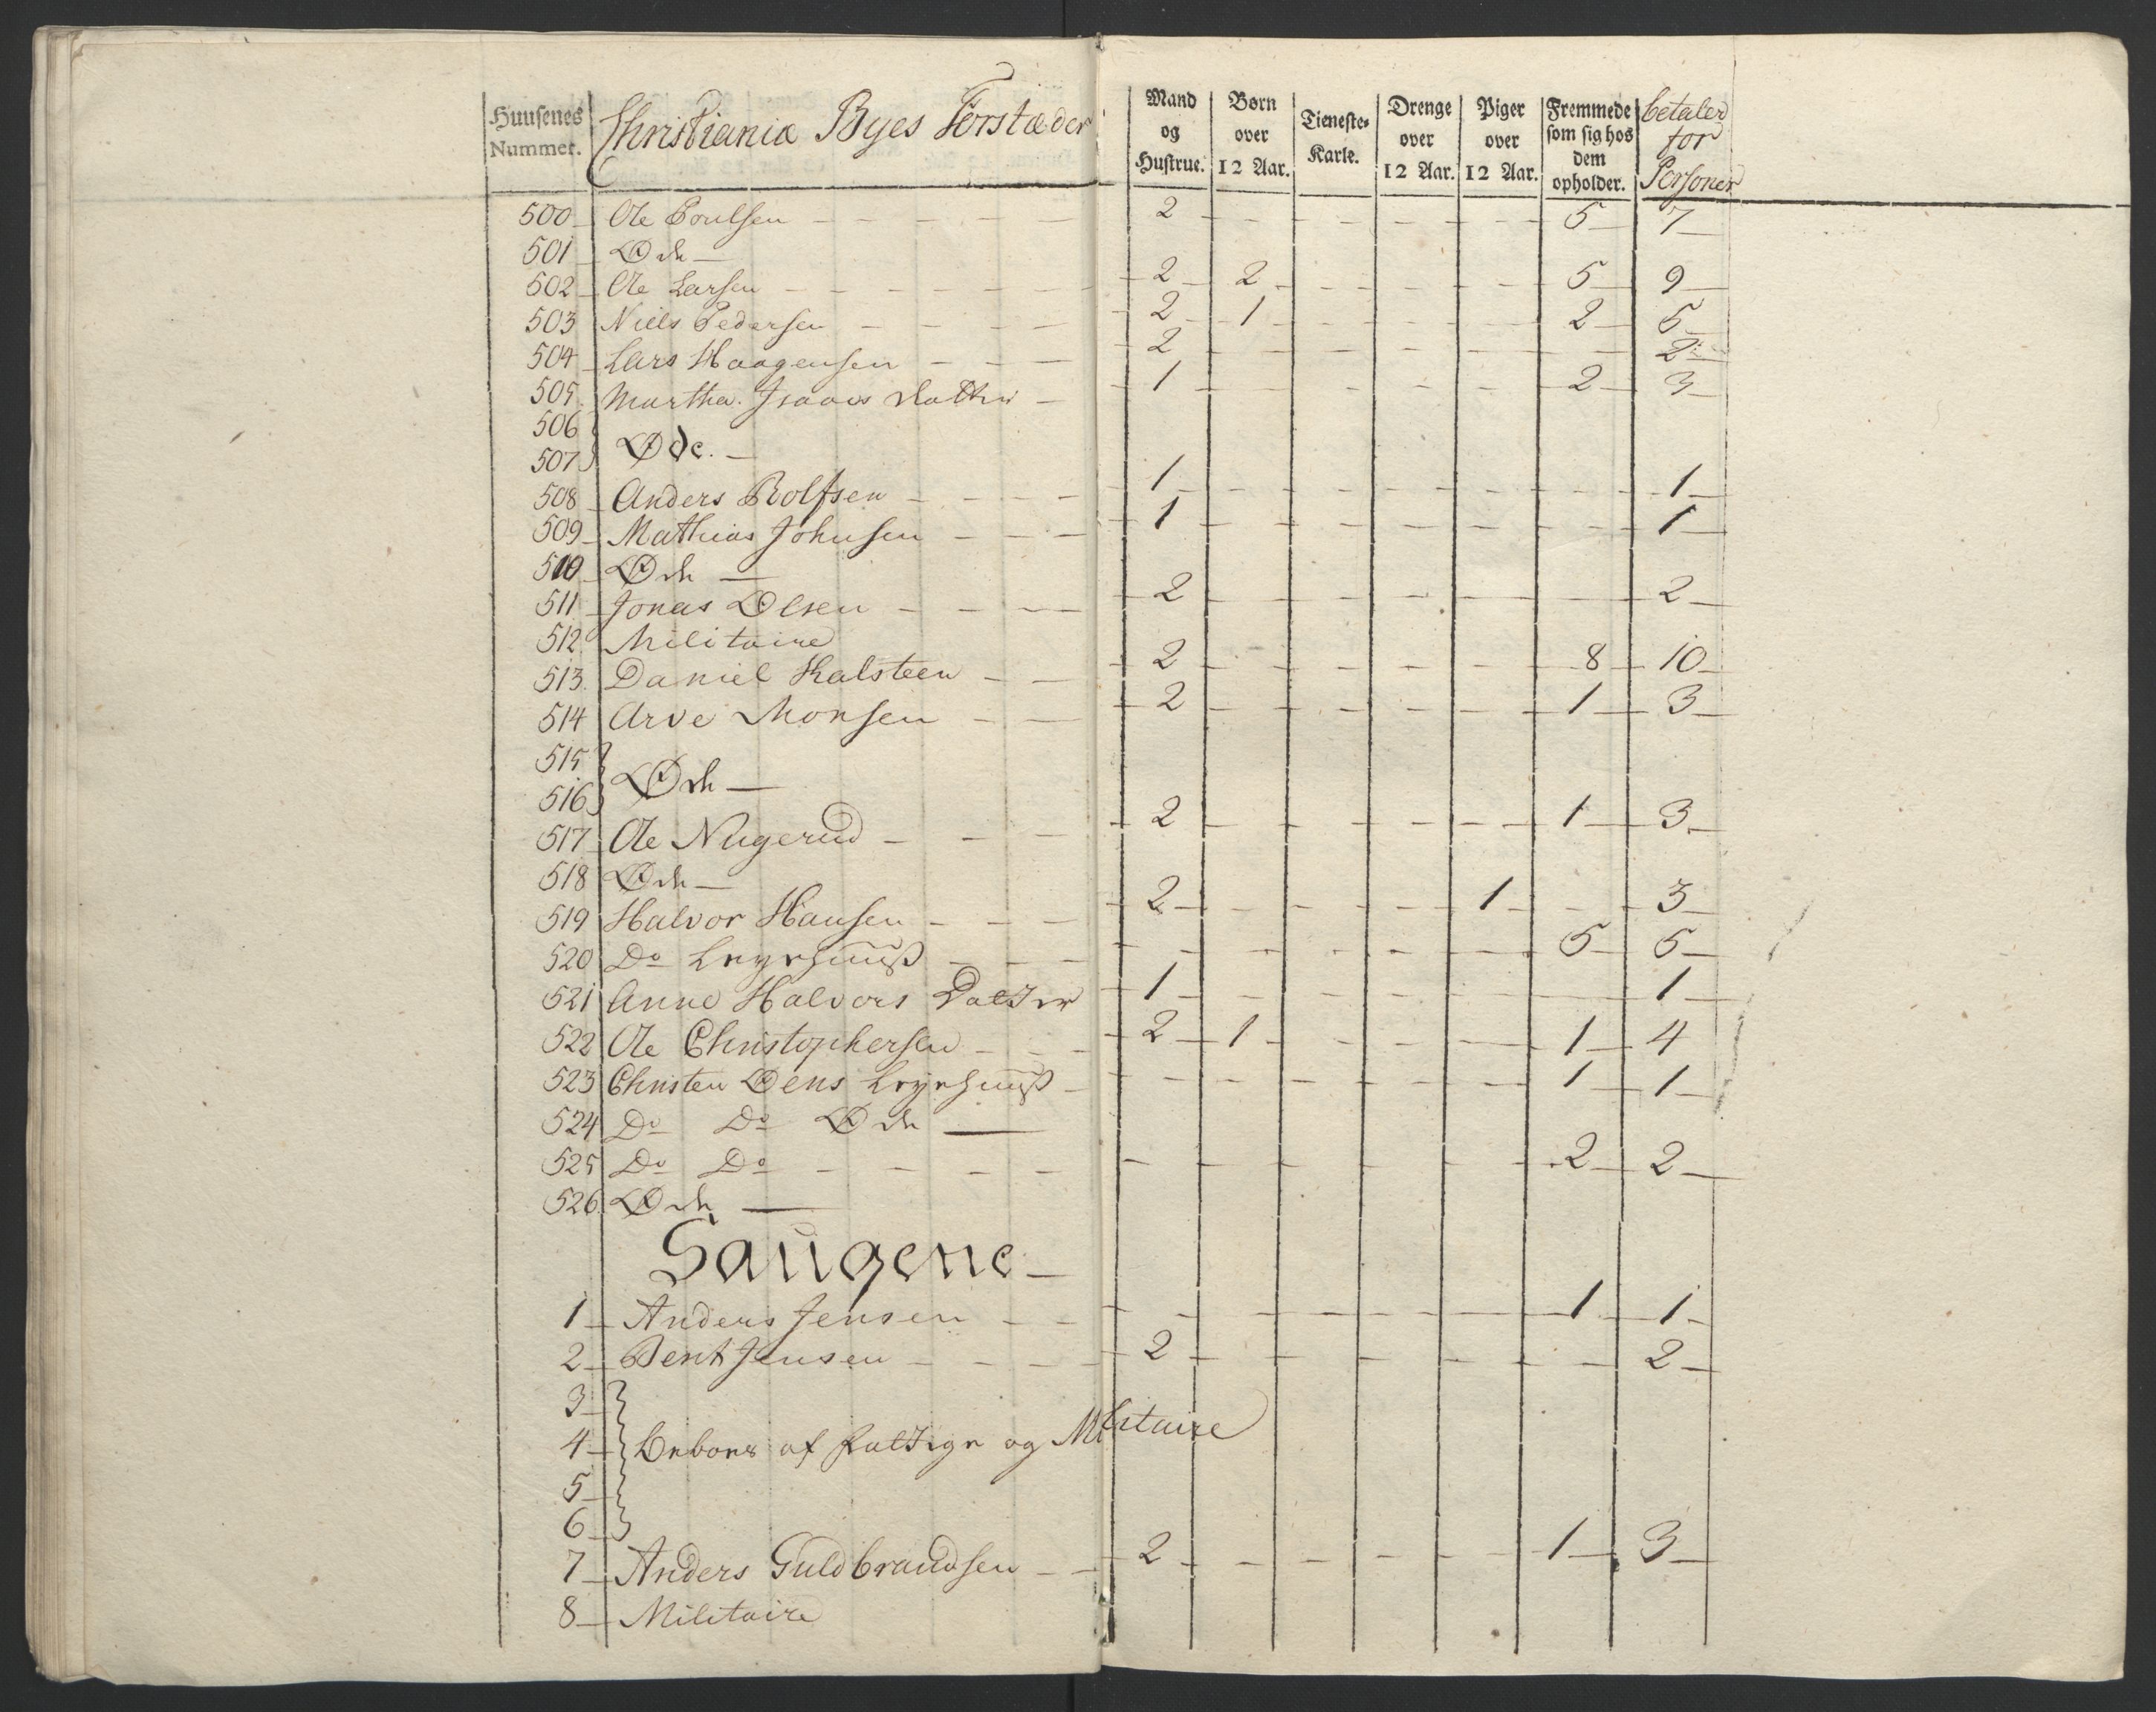 Huusenes Nummer. Christiania Byes Forstæder Mand og Hustrue. Børn over 12 Aar. Tieneste-Karle. Drenge over 12 Aar. Piger over 12 Aar. Fremmede som sig hos dem opholder. betaler for Personer
500 Ole Poulsen 2 5 7
501 Øde
502 Ole Larsen 2 2 5 9
503 Niels Pedersen 2 1 2 5
504 Lars Haagensen 2 2
505 Martha Isaacs datter 1 2 3
506
507 Øde.
508 Anders Rolfsen 1 1
509 Mathias Johnsen 1 1
510 Øde
511 Jonas Olsen 2 2
512 Militaire
513 Daniel Kalsteen 2 8 10
514 Arve Monsen 2 1 3
515
516 Øde
517 Ole Nugerud 2 1 3
518 Øde
519 Halvor Hansen 2 1 3
520 Do Leyehuuß 5 5
521 Anne Halvors Datter 1 1
522 Ole Christophersen 2 1 1 4
523 Christen Øens Leyehuuß 1 1
524 Do Do Øde
525 Do Do 2 2
526 Øde
Saugene
1 Anders Jensen 1 1
2 Bent Jensen 2 2
3
4 Beboes af fattige og Militaire
5
6
7 Anders Guldbrandsen 2 1 3
8 Militaire